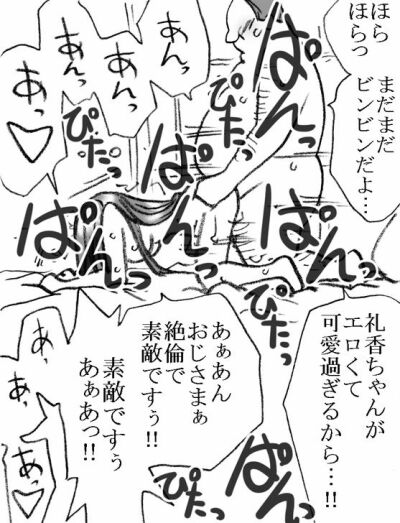 ほら
ほらっ
まだまだ
ビンビンだよ…
ぱんっ
ぴたっ
あんっ
あんっ
あんっ
あっ♡
ぴたっ
ぱんっ
ぱんっ
ぱんっ
ぴたっ
礼香ちゃんが
エロくて
可愛過ぎるから…!!
あぁあん
おじさまぁ
絶倫で
素敵ですぅ!!
素敵ですぅ
あぁあっ!!
ぴたっ
あっ
あっ
あっ♡